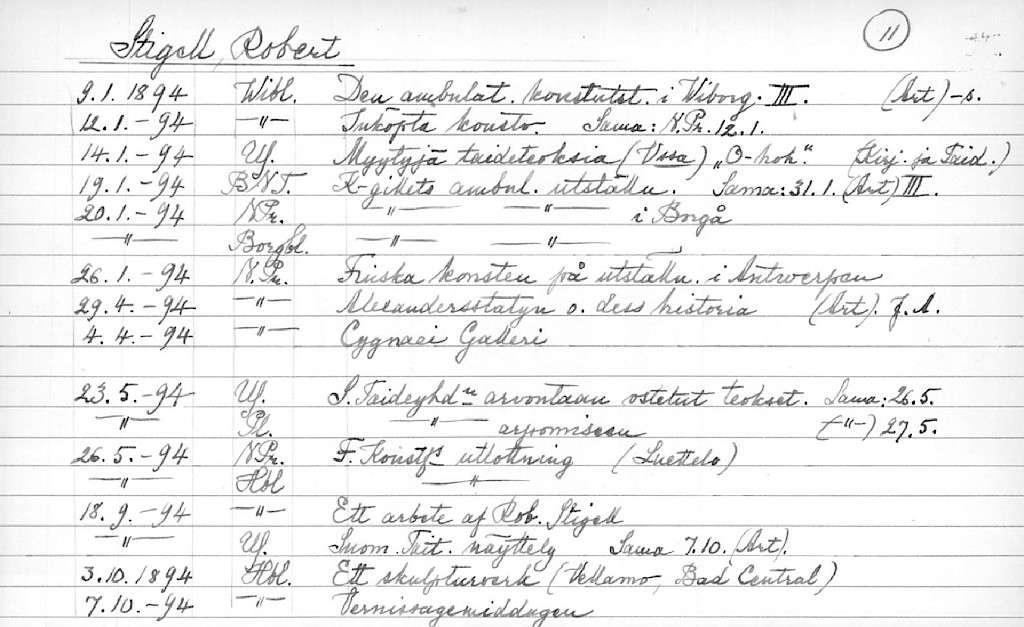 11
Stigell, Robert
9.1.1894 Wibl. Den ambulat. konstutst. i Wiborg. III. (Art) -s.
12.1.-94 -"- Inköpta konstv. Sama: N.Pr. 12.1.
14.1.-94 Uf. Myytyjä taideteoksia (Vssa) „O-koh". (Kirj. ja Taid.)
19.1.-94 B.N.T. K-gillets ambul. utställn. Sama: 31.1. (Art) III.
20.1.-94 N.Pr. -"- -"- i Borgå
-"- Borgbl. -"- -"-
26.1.-94 N.Pr. Finska konsten på utställn. i Antwerpen
29.4.-94 -"- Alexandersstatyn o. dess historia (Art). J.A.
4.4.-94 -"- Cygnaei Galleri
23.5.-94 Uf. S. Taideyhdn arvontaan ostetut teokset. Sama: 26.5.
-"- Pl. -"- arpomiseen (-"-) 27.5.
26.5.-94 N.Pr. F. Konstfs utlottning (Luettelo)
-"- Hbl -"-
18.9.-94 -"- Ett arbete af Rob. Stigell
-"- Uf. Suom. Tait. näyttely Sama 7.10. (Art).
3.10.1894 Hbl. Ett skulpturverk (Vellamo, Bad Central)
7.10.-94 -"- Vernissagemiddagen